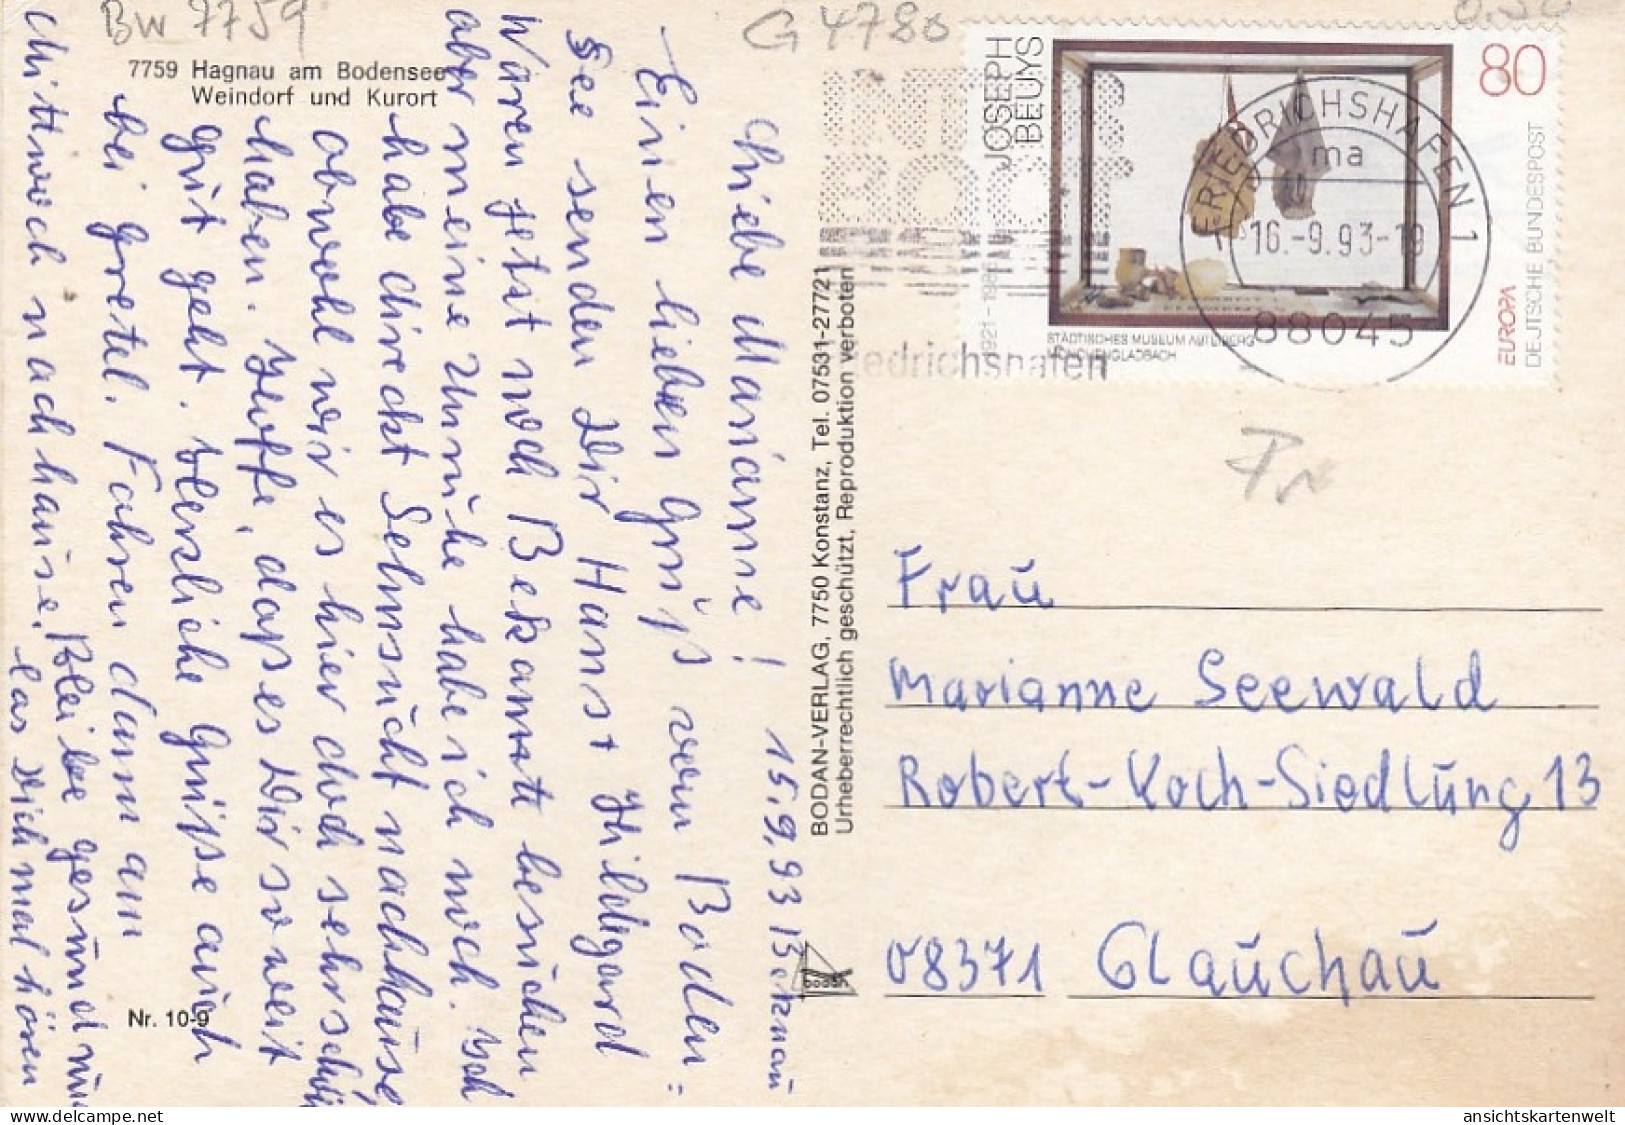 BW 7759
G 4780
7759 Hagnau am Bodensee
Weindorf und Kurort
15.9.93 Betznau
Liebe Marianne!
Einen lieben Gruß vom Boden=
see senden Dir Hans + Hildegard
Waren jetzt noch Bekannte besuchen
aber meine Unruhe habe ich noch. Ich
habe direckt Sehnsucht nachhause
obwohl wir es hier doch sehr schön
haben. Hoffe, daß es Dir soweit
gut geht. Herzliche Grüsse auch
bei Gretel. Fahren dann am
Mittwoch nachhause. Bleibe gesund und
las Dich mal hören
Nr. 10-9
BODAN-VERLAG, 7750 Konstanz, Tel. 07531-27721
Urheberrechtlich geschützt, Reproduktion verboten
bodan
JOSEPH
BEUYS
80
STÄDTISCHES MUSEUM ABTEIBERG
MÖNCHENGLADBACH
EUROPA
DEUTSCHE BUNDESPOST
FRIEDRICHSHAFEN 1
ma
16.-9.93-19
88045
INTER
BOOT
Friedrichshafen
Frau
Marianne Seewald
Robert-Koch-Siedlung 13
08371 Glauchau
ansichtskartenwelt